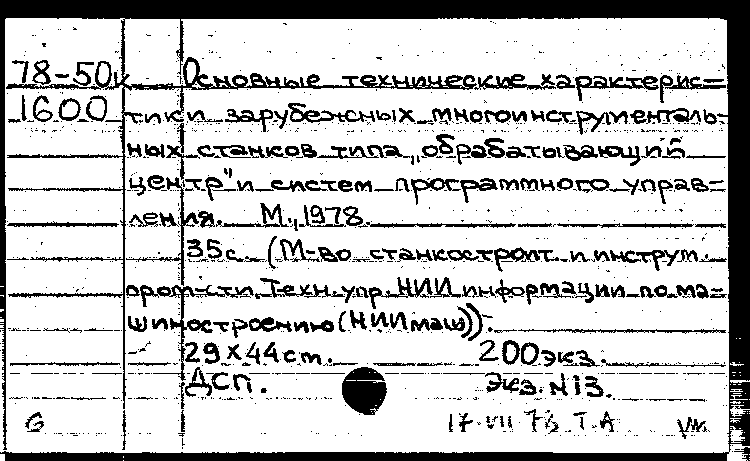 78-50к Основные технические характерис=
1600 тики зарубежных многоинструменталь-
ных станков типа „обрабатывающий
центр" и систем программного управ=
ления. М., 1978.
35с. (М-во станкостроит. и инструм.
пром-сти. Техн. упр. НИИ информации по ма=
шиностроению (НИИмаш)).
29х44см. 200экз.
ДСП. Экз. N13.
G 17.VII 78 Т.А